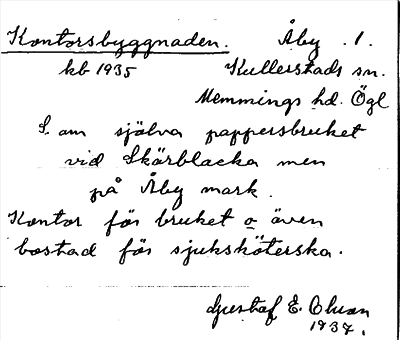 Kontorsbyggnaden. Åby .1.
kb 1935 Kullerstads sn.
Memmings hd. Ögl
S. om själva pappersbruket
vid Skärblacka men
på Åby mark.
Kontor för bruket o även
bostad för sjuksköterska.
Gustaf E. Olsson
1937.